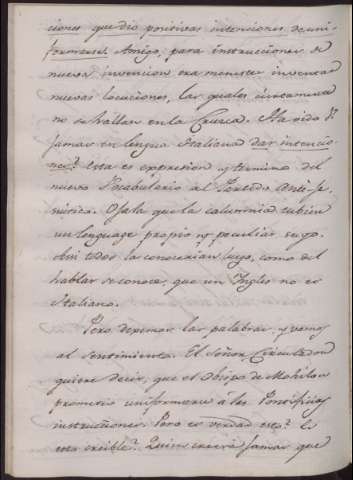 ciones que dio positivas intenciones de uni-
formarse. Amigo, para instrucciones de
nueva invencion era menester inventar
nuevas locuciones, las quales ciertamente
no se hallan en la Crusca. Ha oido V.
jamas en lengua Italiana dar intencio-
nes? Esta es expresion, y termino del
nuevo Vocabulario del Partido Anti-je-
suitico. Ojala que la calumnia tubiese
un lenguage propio, y peculiar suyo.
Asi todos la conocerian luego, como del
hablar se conoce, que un Ingles no es
Italiano.
Pero dexemos las palabras, y vamos
al sentimiento. El Señor Circulador
quiere decir, que el Obispo de Mohilow
prometio uniformarse à las Pontificias
instrucciones. Pero es verdad esto? Es
esto creible? Quien creerá jamas que